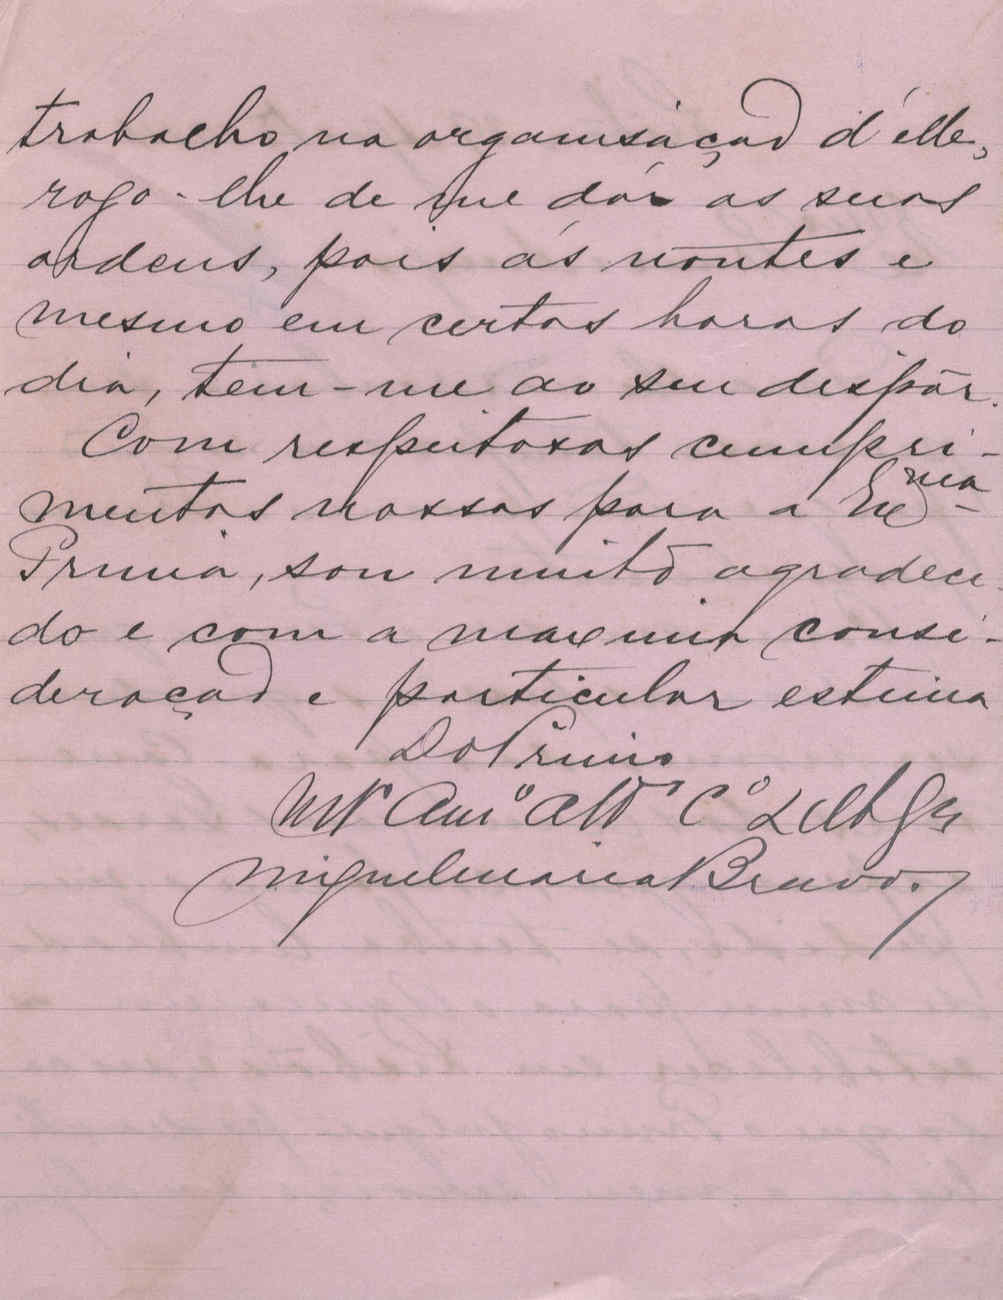 trabalho na organisação d'elle,
rogo-lhe de me dár as suas
ordens, pois ás noutes e
mesmo em certas horas do
dia, tem-me ao seu dispôr.
Com respeitosos cumpri-
mentos nossos para a Exma
Prima, sou muito agradeci-
do e com a maxima consi-
deração e particular estima
Do Primo
Mto Amo Atto Co
Miguel Maria Bravo.